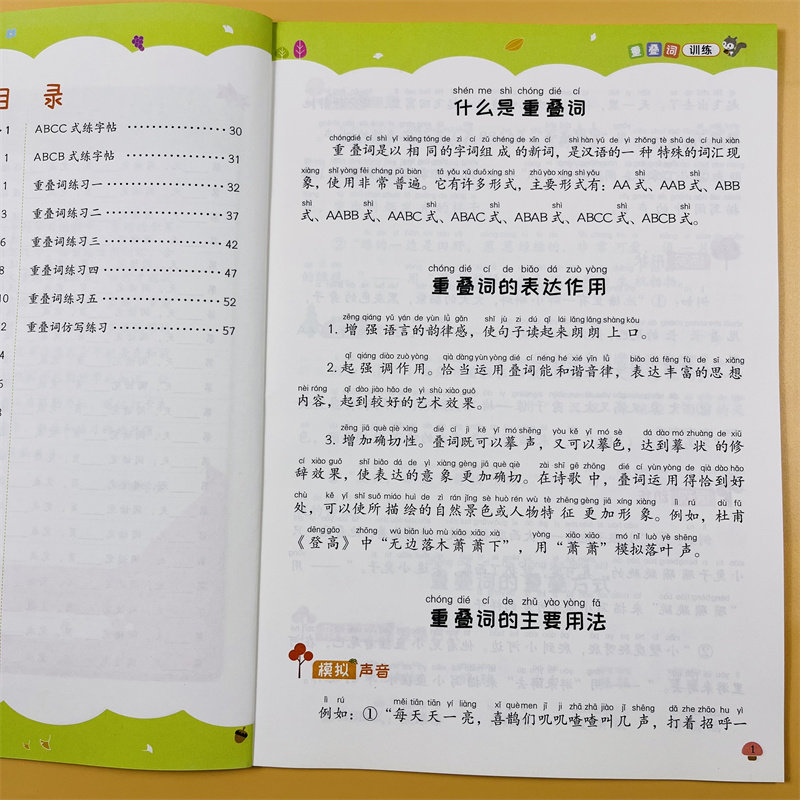 目 录
1
ABCC 式练字帖 30
1
ABCB 式练字帖 31
1
重叠词练习一 32
3
重叠词练习二 37
6
重叠词练习三 42
8
重叠词练习四 47
10
重叠词练习五 52
2
重叠词仿写练习 57
4
6
8
3
重叠词 训练
shén me shì chóng dié cí
什么是重叠词
chóngdié cí shì yǐ xiāng tóng de zì cí zǔ chéng de xīn cí shì hàn yǔ de yì zhǒng tè shū de cí huì xiàn
重叠词是以相同的字词组成的新词，是汉语的一种特殊的词汇现
xiàng shǐ yòng fēi cháng pǔ biàn tā yǒu xǔ duō xíng shì zhǔ yào xíng shì yǒu shì shì shì
象，使用非常普遍。它有许多形式，主要形式有：AA 式、AAB 式、ABB
shì shì shì shì shì shì shì
式、AABB 式、AABC 式、ABAC 式、ABAB 式、ABCC 式、ABCB 式。
chóng dié cí de biǎo dá zuò yòng
重叠词的表达作用
zēng qiáng yǔ yán de yùn lǜ gǎn shǐ jù zi dú qǐ lái lǎng lǎng shàng kǒu
1. 增强语言的韵律感，使句子读起来朗朗上口。
qǐ qiáng diào zuò yòng qià dàng yùn yòng dié cí néng hé xié yīn lǜ biǎo dá fēng fù de sī xiǎng
2. 起强调作用。恰当运用叠词能和谐音律，表达丰富的思想
nèi róng qǐ dào jiào hǎo de yì shù xiào guǒ
内容，起到较好的艺术效果。
zēng jiā què qiè xìng dié cí jì kě yǐ mó shēng yòu kě yǐ mó sè dá dào mó zhuàng de xiū
3. 增加确切性。叠词既可以摹声，又可以摹色，达到摹状的修
cí xiào guǒ shǐ biǎo dá de yì xiàng gèng jiā què qiè zài shī gē zhōng dié cí yùn yòng de qià dào hǎo
辞效果，使表达的意象更加确切。在诗歌中，叠词运用得恰到好
chù kě yǐ shǐ suǒ miáo huì de zì rán jǐng sè huò rén wù tè zhēng gèng jiā xíng xiàng lì rú dù fǔ
处，可以使所描绘的自然景色或人物特征更加形象。例如，杜甫
dēng gāo zhōng wú biān luò mù xiāo xiāo xià yòng xiāo xiāo mó nǐ luò yè shēng
《登高》中“无边落木萧萧下”，用“萧萧”模拟落叶声。
chóng dié cí de zhǔ yào yòng fǎ
重叠词的主要用法
模拟 声音
lì rú měi tiān tiān yí liàng xǐ què men jī jī zhā zhā jiào jǐ shēng dǎ zhe zhāo hu yì
例如：①“每天天一亮，喜鹊们叽叽喳喳叫几声，打着招呼一
1